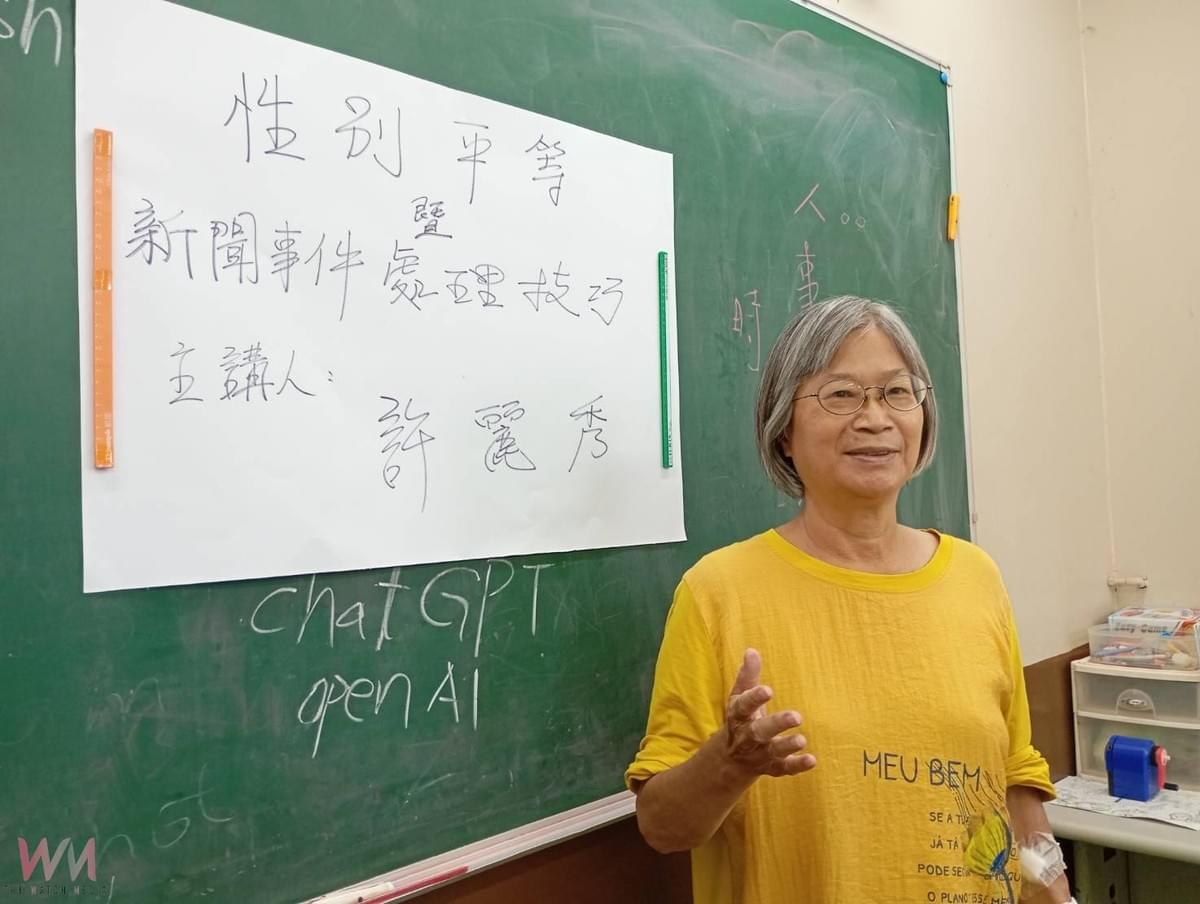 性別平等
暨
新聞事件處理技巧
主講人：
許麗秀
chatGPT
open AI
人。。
事
時
not
MEU BEM
SE A TU
JÁ TÁ
PODE SE
O PLANO
WM
THE WATCH MEDIA